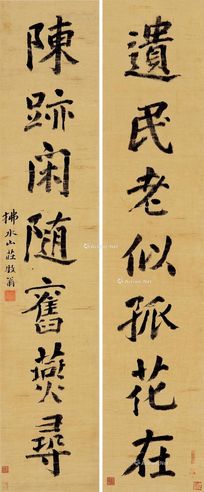 遺民老似孤花在
陳跡闲随舊燕尋
拂水山莊牧翁